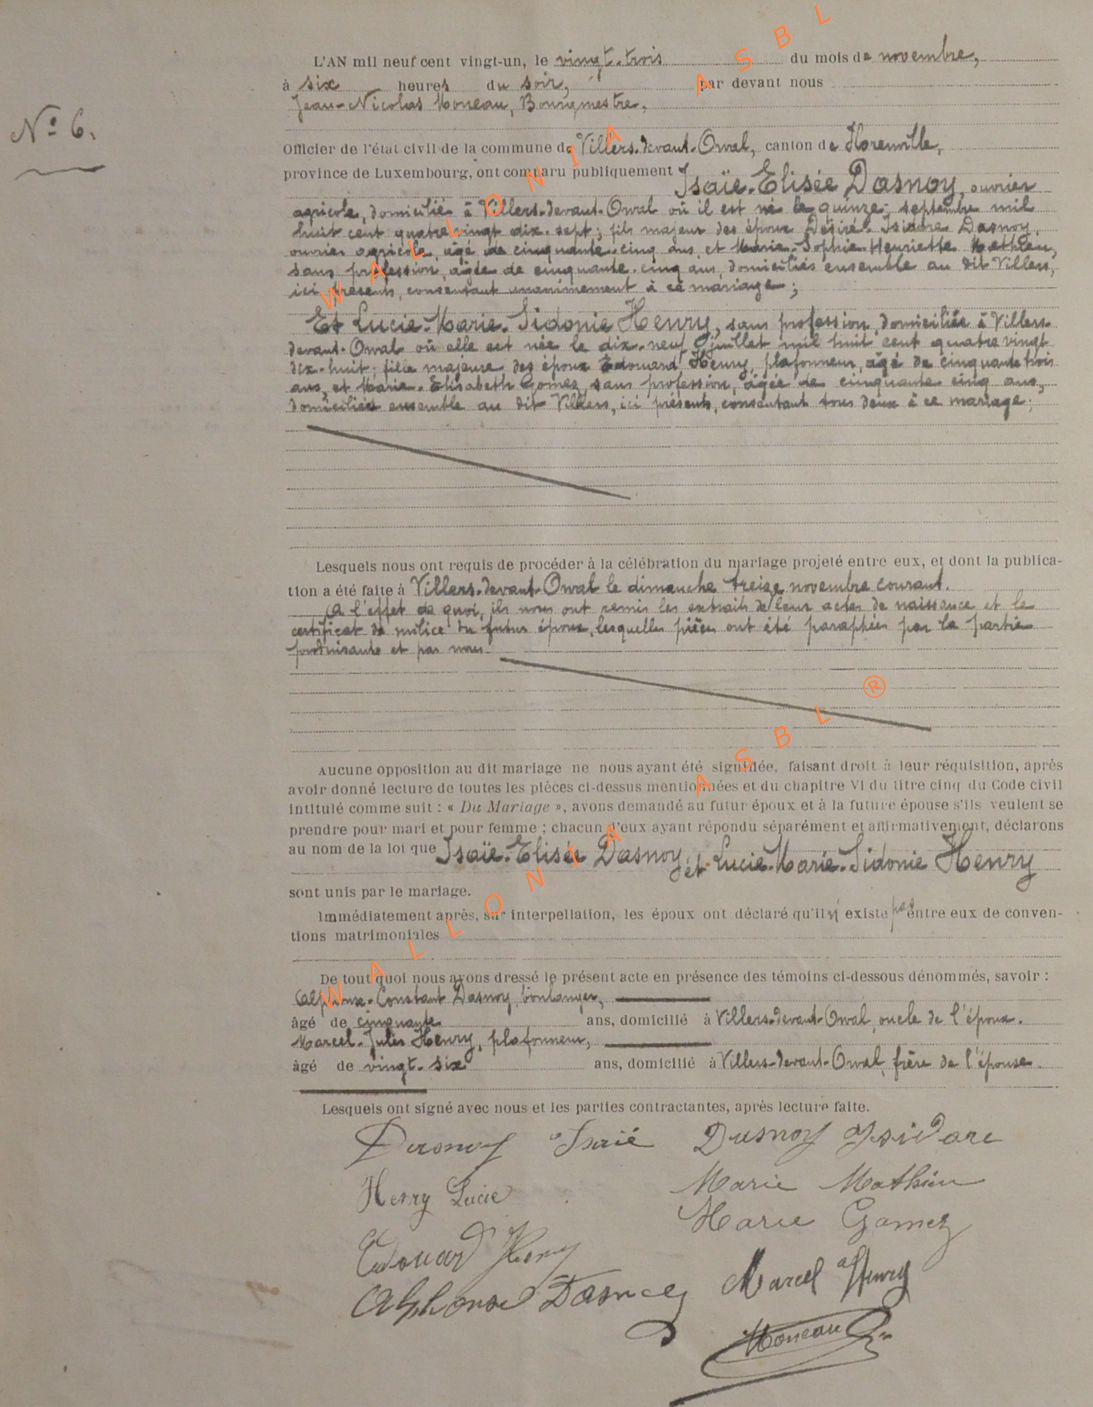 L'AN mil neuf cent vingt-un, le vingt-trois du mois de novembre,
à six heures du soir, par devant nous
Jean-Nicolas Moneau, Bourgmestre,
N° 6.
Officier de l'état civil de la commune de Villers-devant-Orval, canton de Florenville,
province de Luxembourg, ont comparu publiquement Isaïe-Elisée Dasnoy, ouvrier
agricole, domicilié à Villers-devant-Orval où il est né le quinze septembre mil
huit cent quatre vingt dix-sept; fils majeur des époux Désiré-Isidore Dasnoy,
ouvrier agricole, âgé de cinquante-cinq ans, et Marie-Sophie-Henriette Mathieu,
sans profession, âgée de cinquante-cinq ans, domiciliés ensemble au dit Villers,
ici présents, consentant unanimement à ce mariage;
Et Lucie-Marie-Sidonie Henry, sans profession, domiciliée à Villers-
devant-Orval où elle est née le dix-neuf juillet mil huit cent quatre vingt
dix-huit; fille majeure des époux Edouard Henry, plafonneur, âgé de cinquante trois
ans, et Marie-Elisabeth Gomez, sans profession, âgée de cinquante cinq ans,
domiciliés ensemble au dit Villers, ici présents, consentant tous deux à ce mariage;
Lesquels nous ont requis de procéder à la célébration du mariage projeté entre eux, et dont la publica-
tion a été faite à Villers-devant-Orval le dimanche treize novembre courant.
A l'effet de quoi, ils nous ont remis les extraits de leur actes de naissance et le
certificat de milice du futur époux, lesquelles pièces ont été paraphées par la partie
produisante et par nous.
Aucune opposition au dit mariage ne nous ayant été signifiée, faisant droit à leur réquisition, après
avoir donné lecture de toutes les pièces ci-dessus mentionnées et du chapitre VI du titre cinq du Code civil
intitulé comme suit : « Du Mariage », avons demandé au futur époux et à la future épouse s'ils veulent se
prendre pour mari et pour femme ; chacun d'eux ayant répondu séparément et affirmativement, déclarons
au nom de la loi que Isaïe-Elisée Dasnoy et Lucie-Marie-Sidonie Henry
sont unis par le mariage.
Immédiatement après, sur interpellation, les époux ont déclaré qu'il n'existe pas entre eux de conven-
tions matrimoniales
De tout quoi nous avons dressé le présent acte en présence des témoins ci-dessous dénommés, savoir :
Alphonse-Constant Dasnoy, boulanger,
âgé de cinquante ans, domicilié à Villers-devant-Orval, oncle de l'époux.
Marcel-Jules Henry, plafonneur,
âgé de vingt-six ans, domicilié à Villers-devant-Orval, frère de l'épouse.
Lesquels ont signé avec nous et les parties contractantes, après lecture faite.
Dasnoy Isaïe Dasnoy Isidore
Henry Lucie Marie Mathieu
Marie Gomez
Edouard Henry
Alphonse Dasnoy Marcel Henry
Moneau
WALLONIA ASBL
WALLONIA ASBL ®